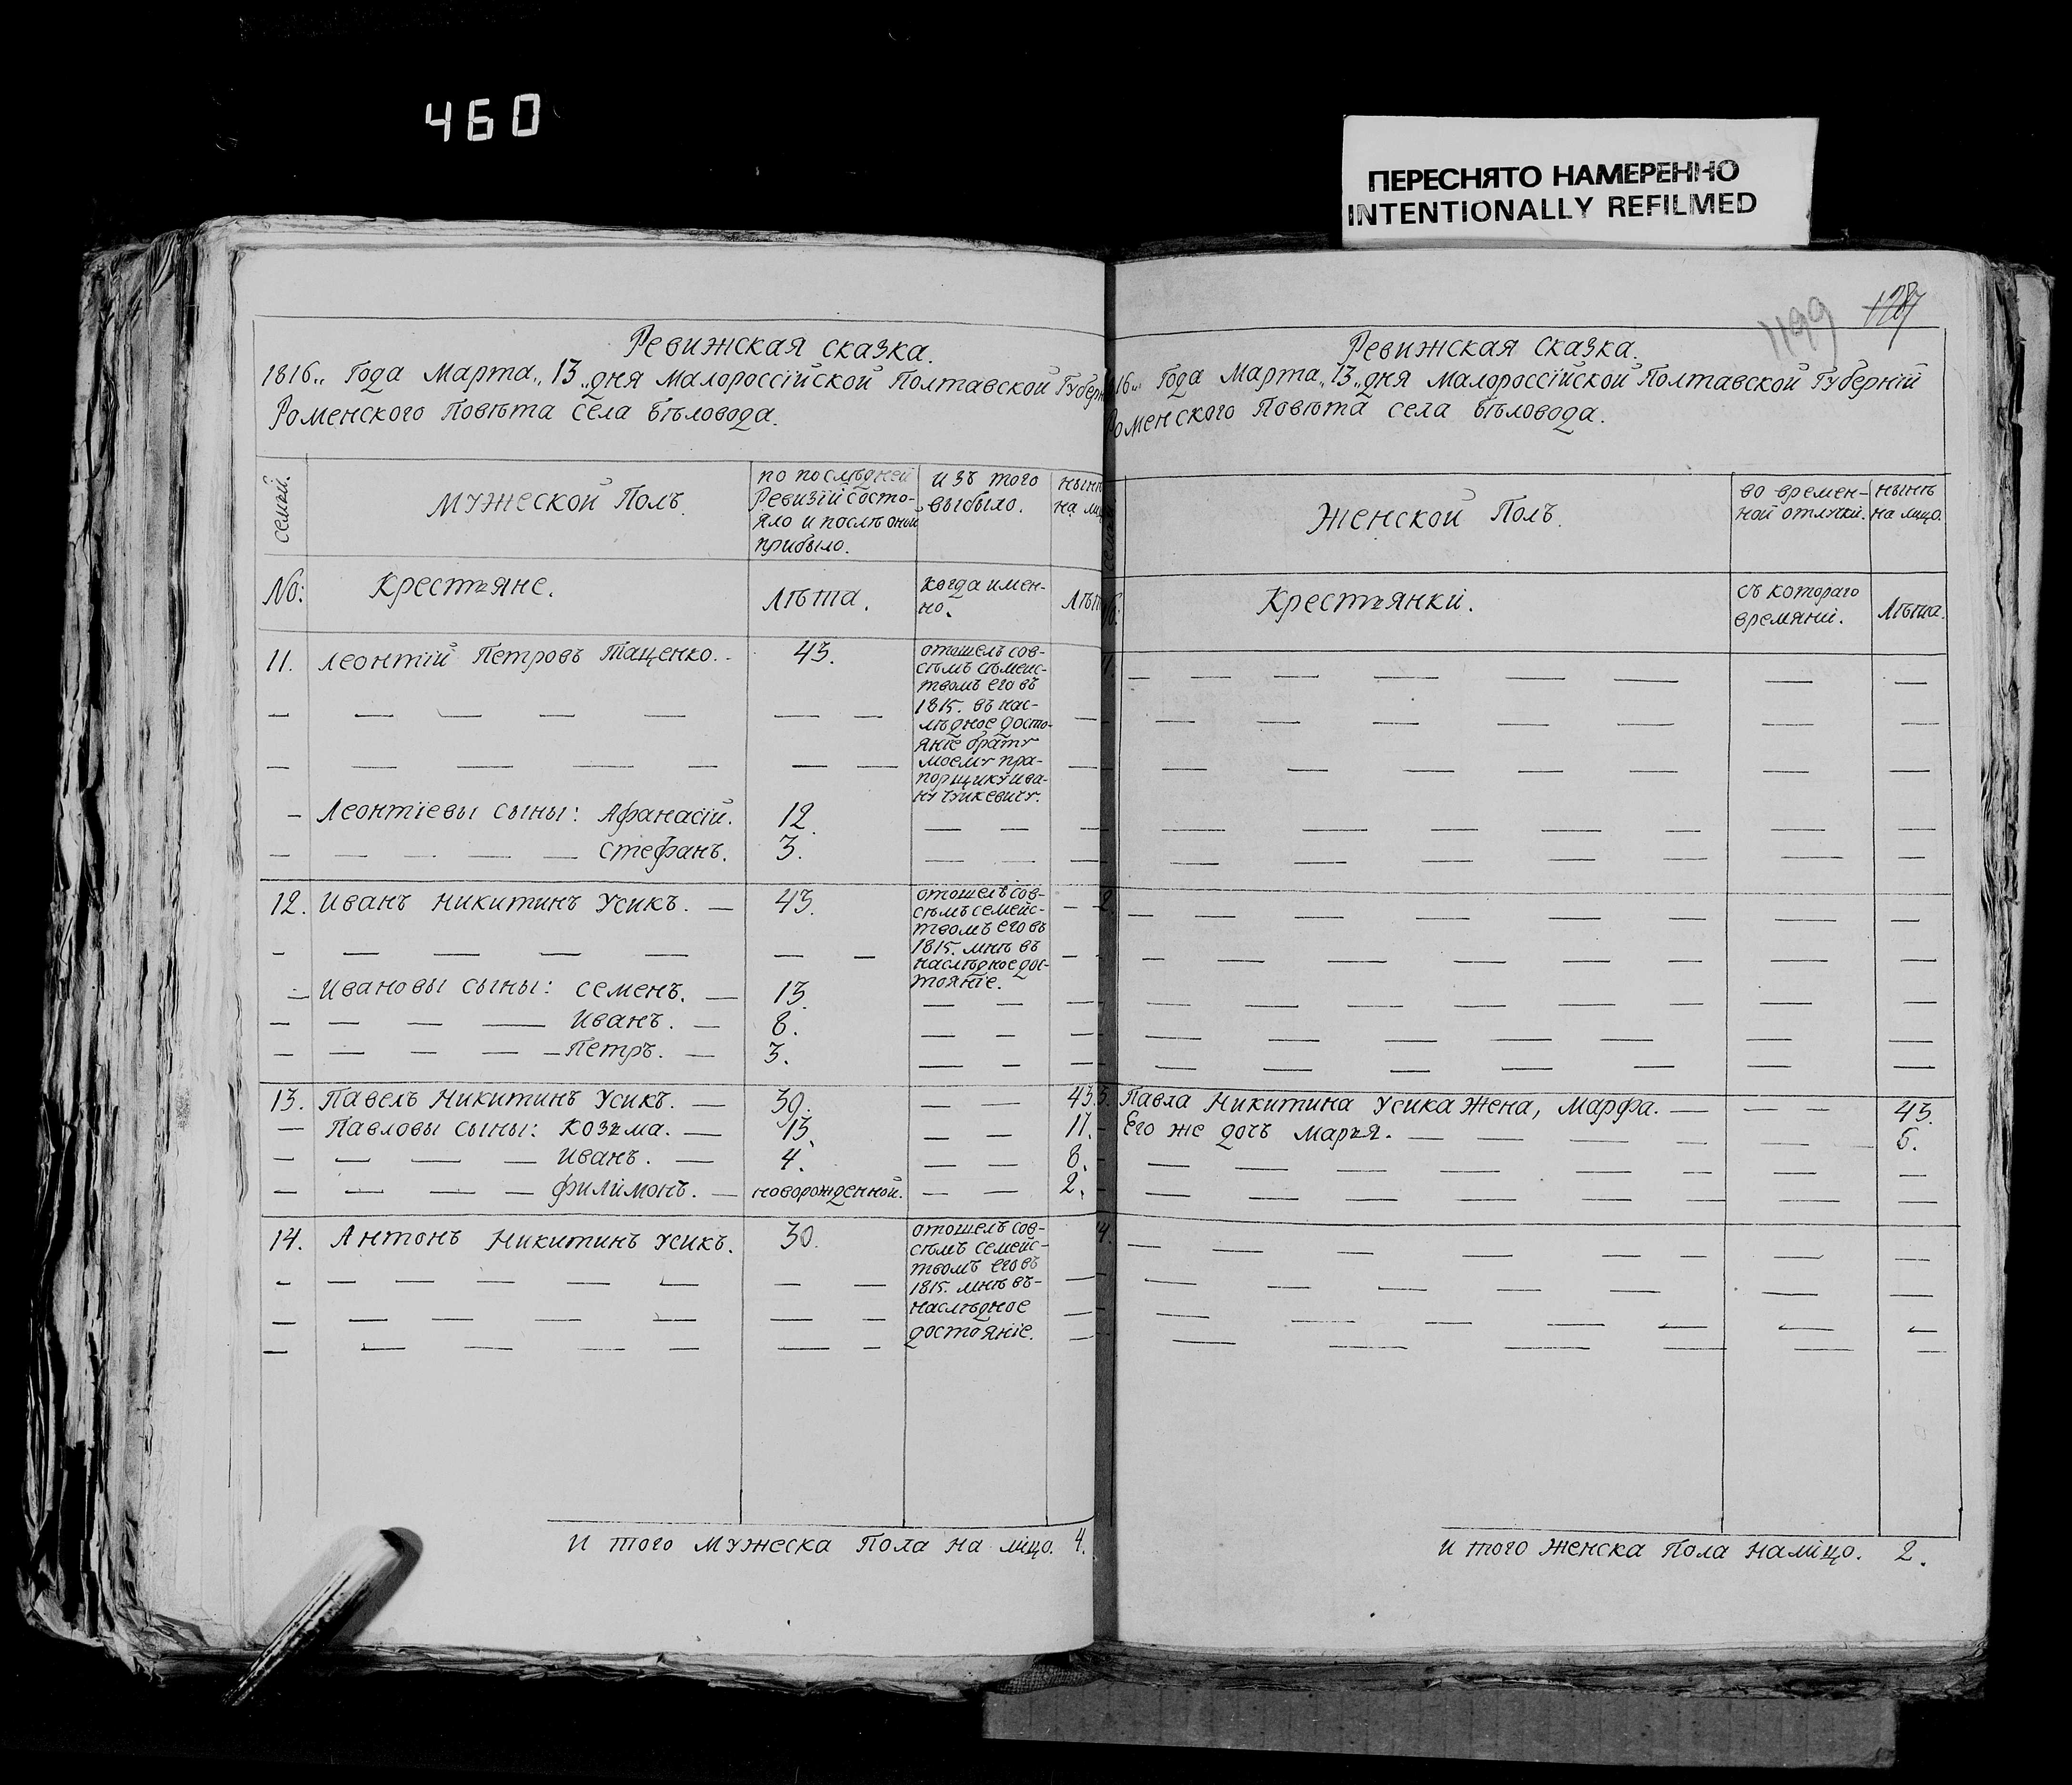 460
ПЕРЕСНЯТО НАМЕРЕННО
INTENTIONALLY REFILMED
Ревижская сказка.
1816„ Года Марта„ 13„ дня Малороссійской Полтавской Губерн
Роменского Повѣта села Бѣловода.
семьи.
мужеской Полъ.
по послѣдней
Ревизіи состо-
яло и послѣ оной
прибыло.
изъ того
выбыло.
нынѣ
на лиц
№:
Крестьяне.
Лѣта.
когда имен-
но.
Лѣт
11. Леонтій Петровъ Тащенко. 43.
отошелъ сов-
сѣмъ съмейс-
твомъ его въ
1815. въ нас-
лѣдное досто-
яніе брату
моему пра-
порщику Ива-
ну Чуйкевичу.
Леонтіевы сыны: Афанасій. 12.
Стефанъ. 3.
12. Иванъ Никитинъ Усикъ. 43.
отошелъ сов-
сѣмъ семейс-
твомъ его въ
1815. мнѣ въ
наслѣдное дос-
тояніе.
Ивановы сыны: Семенъ. 13.
Иванъ. 8.
Петръ. 3.
13. Павелъ Никитинъ Усикъ. 39. 43.
Павловы сыны: Козьма. 13. 17.
Иванъ. 4. 8.
Филимонъ. новорожденной. 2.
14. Антонъ Никитинъ Усикъ. 30.
отошелъ сов-
сѣмъ семейс-
твомъ его въ
1815. мнѣ въ-
наслѣдное
достояніе.
И того мужеска Пола на лицо. 4.
1199
128
Ревижская сказка.
16„ Года Марта„ 13„ дня Малороссійской Полтавской Губерніи
Роменского Повѣта села Бѣловода.
Женской Полъ.
во времен-
ной отлучки.
нынѣ
на лицо.
Крестьянки.
съ котораго
времяни.
Лѣта.
Павла Никитина Усика жена, Марфа. 43.
Его же дочь Марья. 6.
И того женска Пола налицо. 2.